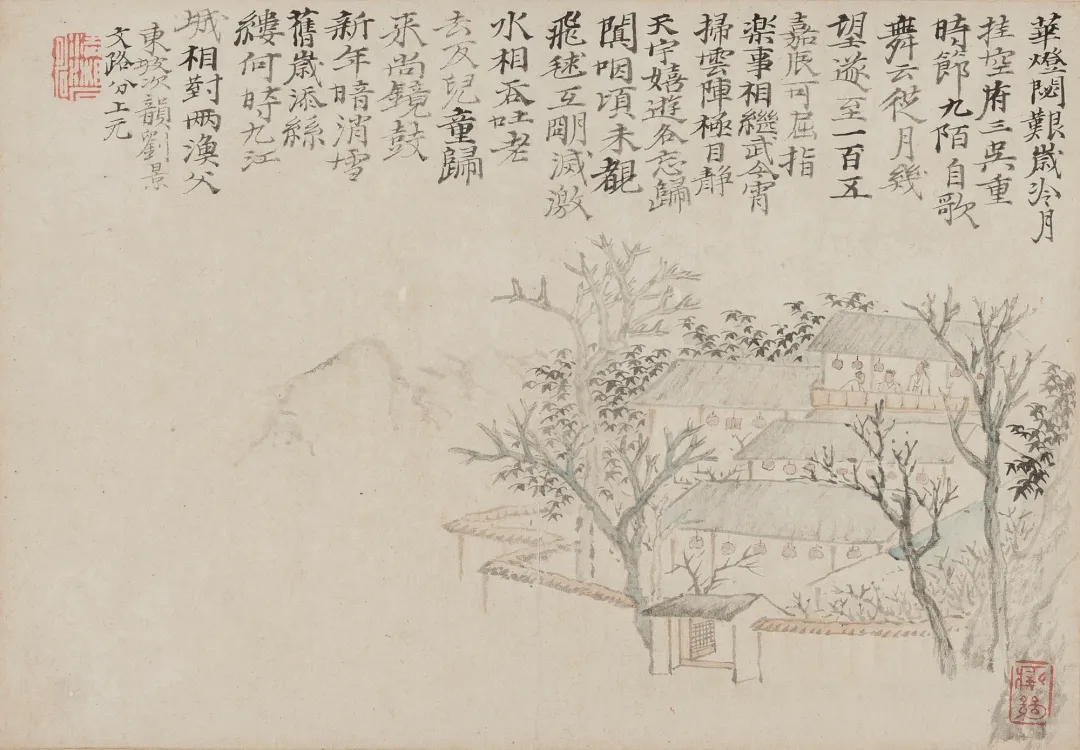 華燈閟艱歲冷月
挂空府三吳重
時節九陌自歌
舞云從月幾
望遂至一百五
嘉辰可屈指
樂事相繼武今宵
掃雲陣極目靜
天宇嬉遊各忘歸
闐咽頃未覩
飛毬互明滅激
水相吞吐老
去反兒童歸
來尚鐃鼓
新年暗消雪
舊歲添絲
縷何時九江
城相對兩漁父
東坡次韻劉景
文路分上元